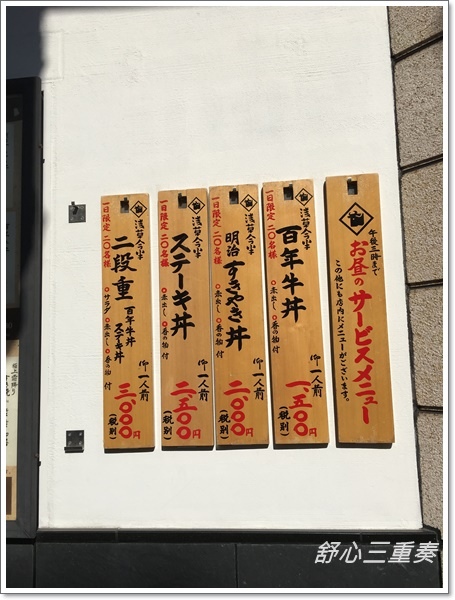 午後三時まで
お昼のサービスメニュー
この他にも店内にメニューがございます。
浅草今半
百年牛丼
一日限定 二〇名様
御一人前
一、五〇〇円
(税別)
浅草今半
明治すきやき丼
一日限定 二〇名様
赤出し 香の物 付
御一人前
二、〇〇〇円
(税別)
浅草今半
ステーキ丼
一日限定 二〇名様
赤出し 香の物 付
御一人前
二、五〇〇円
(税別)
浅草今半
二段重 百年牛丼 ステーキ丼
一日限定 二〇名様
サラダ 赤出し 香の物 付
御一人前
三、〇〇〇円
(税別)
舒心三重奏